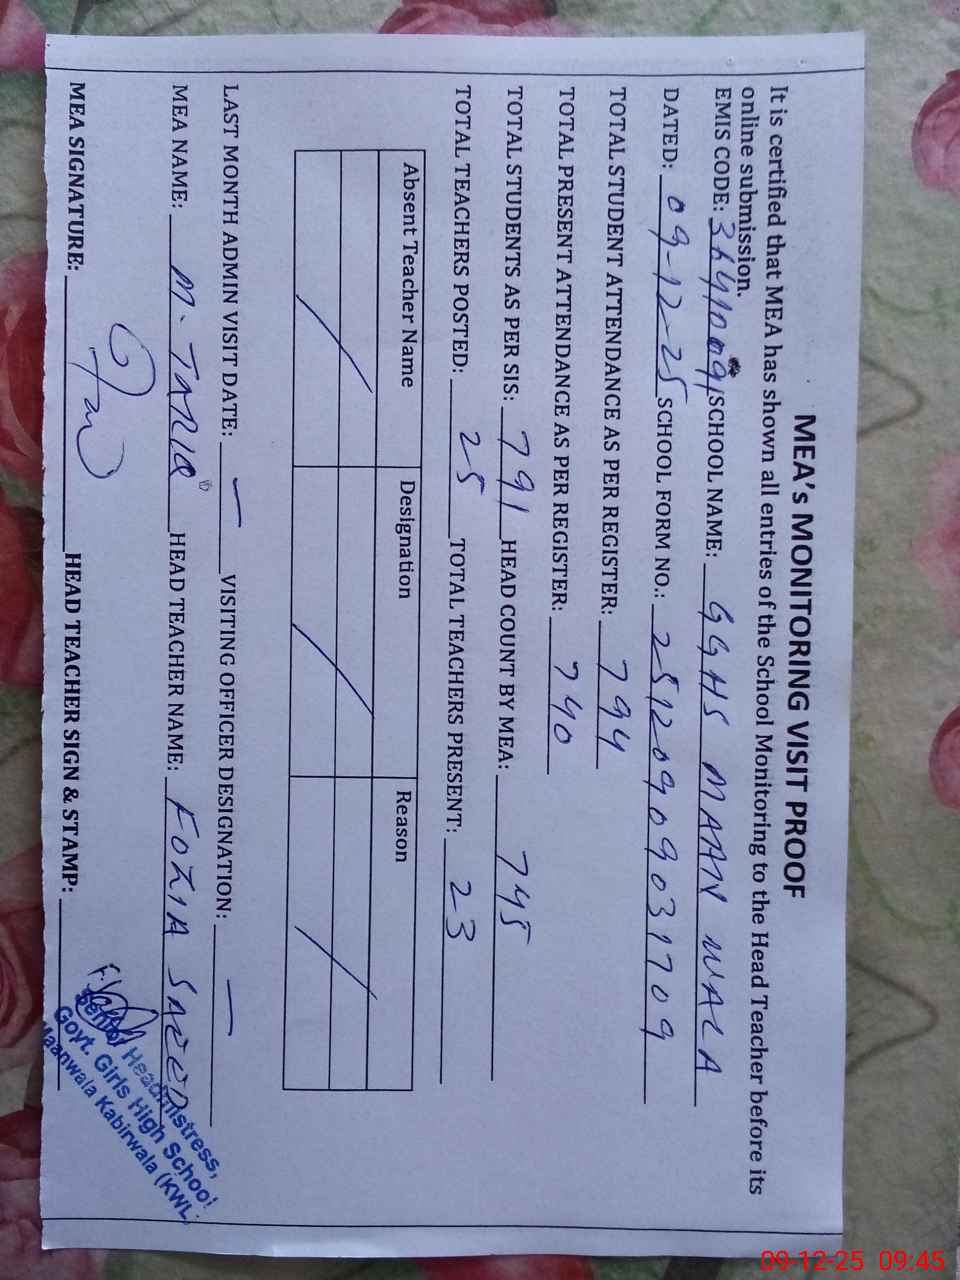 MEA's MONITORING VISIT PROOF
It is certified that MEA has shown all entries of the School Monitoring to the Head Teacher before its
online submission.
EMIS CODE: 36410091 SCHOOL NAME: GGHS MAAN WALA
DATED: 09-12-25 SCHOOL FORM NO.: 25120909031709
TOTAL STUDENT ATTENDANCE AS PER REGISTER: 794
TOTAL PRESENT ATTENDANCE AS PER REGISTER: 740
TOTAL STUDENTS AS PER SIS: 791 HEAD COUNT BY MEA: 745
TOTAL TEACHERS POSTED: 25 TOTAL TEACHERS PRESENT: 23
Absent Teacher Name Designation Reason
LAST MONTH ADMIN VISIT DATE: — VISITING OFFICER DESIGNATION: —
MEA NAME: M. TARIQ HEAD TEACHER NAME: FOZIA SAEED
MEA SIGNATURE: HEAD TEACHER SIGN & STAMP:
Senior Headmistress,
Govt. Girls High School
Maanwala Kabirwala (KWL
09-12-25 09:45